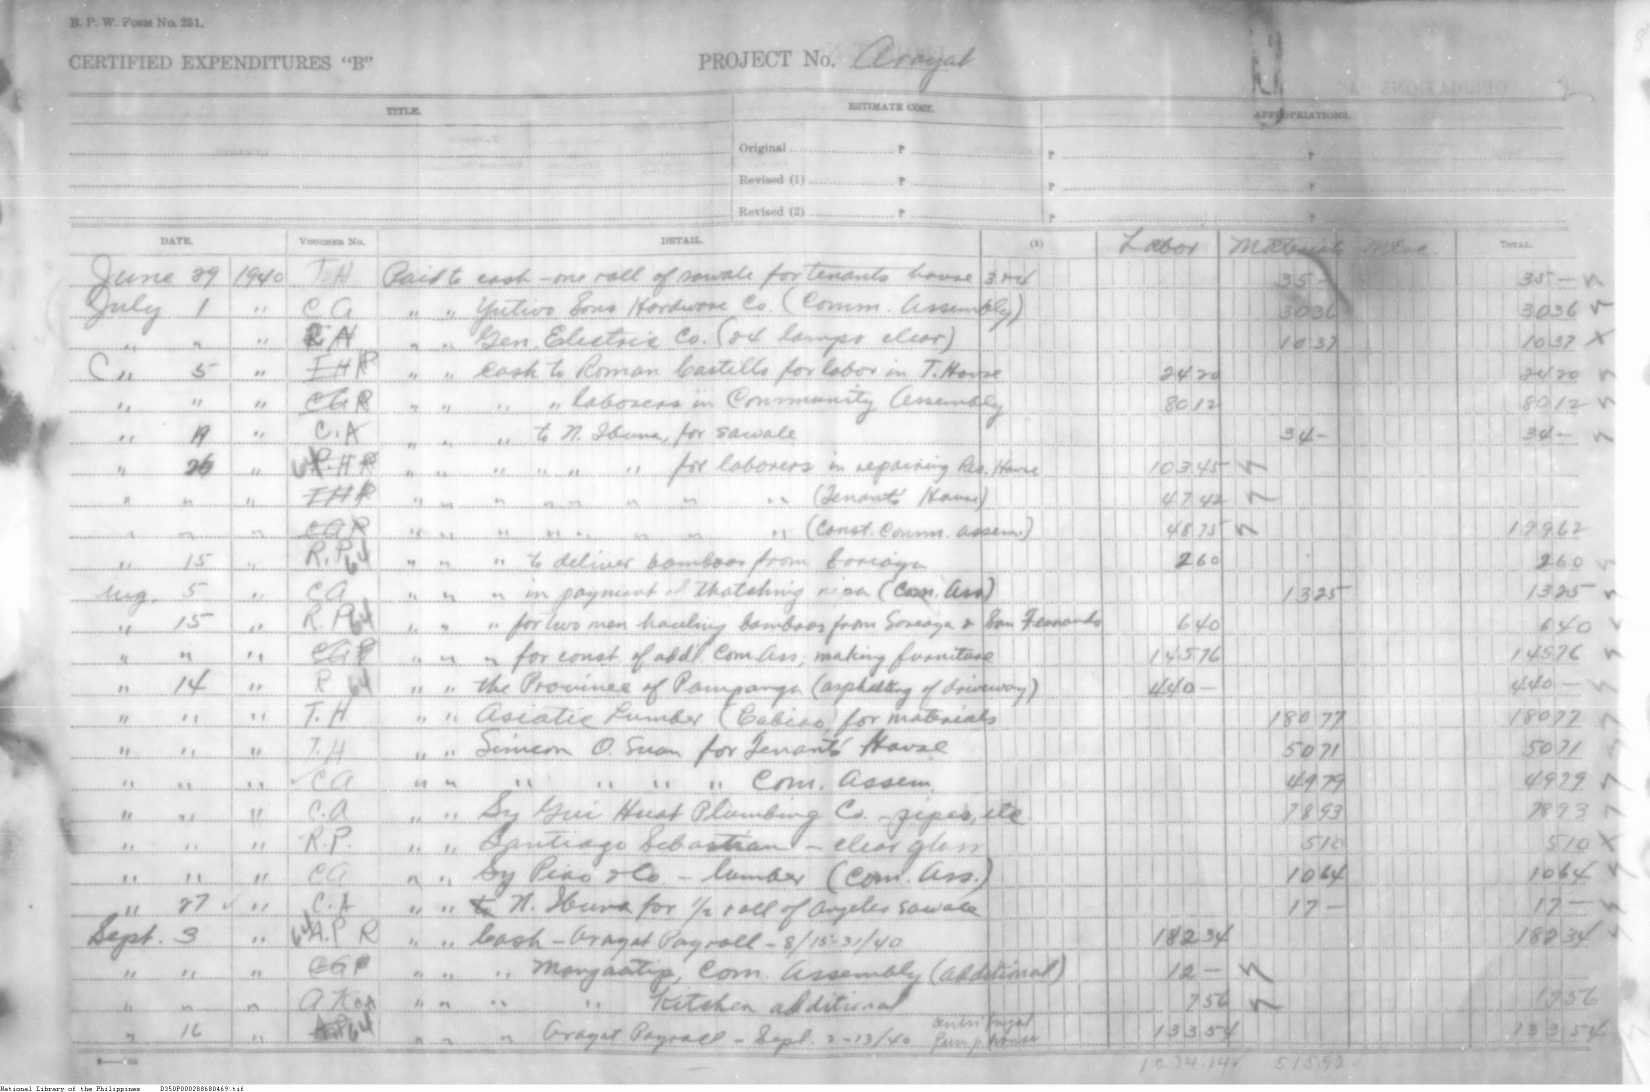 B. P. W. Form No. 251.
CERTIFIED EXPENDITURES "B" PROJECT No. Arayat
TITLE. ESTIMATE COST. APPROPRIATIONS.
Original ₱ ₱ ₱
Revised (1) ₱ ₱ ₱
Revised (2) ₱ ₱ ₱
DATE. VOUCHER No. DETAIL. (1) Labor Materials Misc. TOTAL.
June 29 1940 T.H Paid to cash - one roll of sawale for tenants house 35 - 35 -
July 1 " C A " " Yutivo Sons Hardware Co. (Comm. Assembly) 3036 3036
" " " " " Gen. Electric Co. (24 lamps clear) 1037 1037
" 5 " T H R " " Cash to Roman Castillo for labor in T. House 2420 2420
" " " C A R " " " " laborers in Community Assembly 8012 8012
" 19 " C.A " " " to N. Ibuna, for sawale 34 - 34 -
" 26 " R.H R " " " " " " for laborers in repairing Res. House 103.45
" " " T H R " " " " " " " " (Tenants' House) 4742
" " " C A R " " " " " " " " (Const. Comm. Assem.) 4875 19962
" 15 " R.P 64 " " " to deliver bamboos from 260 260
Aug. 5 " C A " " " in payment of thatching nipa (Com. Ass) 1325 1325
" 15 " R. P 64 " " " for two men hauling bamboos from & San Fernando 640 640
" " " " " " for const. of add. Com. Ass, making furniture 14576 14576
" 14 " R 64 " " the Province of Pampanga (asphalting of driveway) 440 - 440 -
" " " T. H " " Asiatic Lumber (Cabiao) for materials 18077 18077
" " " T. H " " Simeon O. Suan for Tenants' House 5071 5071
" " " C A " " " " " " Com. Assem. 4979 4979
" " " C.A " " Sy Gui Huat Plumbing Co. - pipes, etc 7893 7893
" " " R.P. " " Santiago Sebastian - clear glass 510 510
" " " C A " " Sy Piao & Co - lumber (Com. Ass.) 1064 1064
" 27 " C.A " " to N. Ibuna for 1/2 roll of Angeles sawale 17 - 17 -
Sept. 3 " 64 A.P R " " Cash - Arayat Payroll - 8/15-31/40 18234 18234
" " " " " " Mangaatip, Com. Assembly (additional) 12 -
" " " " " " " Kitchen additional 756 1956
" 16 " A.P 64 " " " Arayat Payroll - Sept. 2-13/40 Pump house 13354 13354